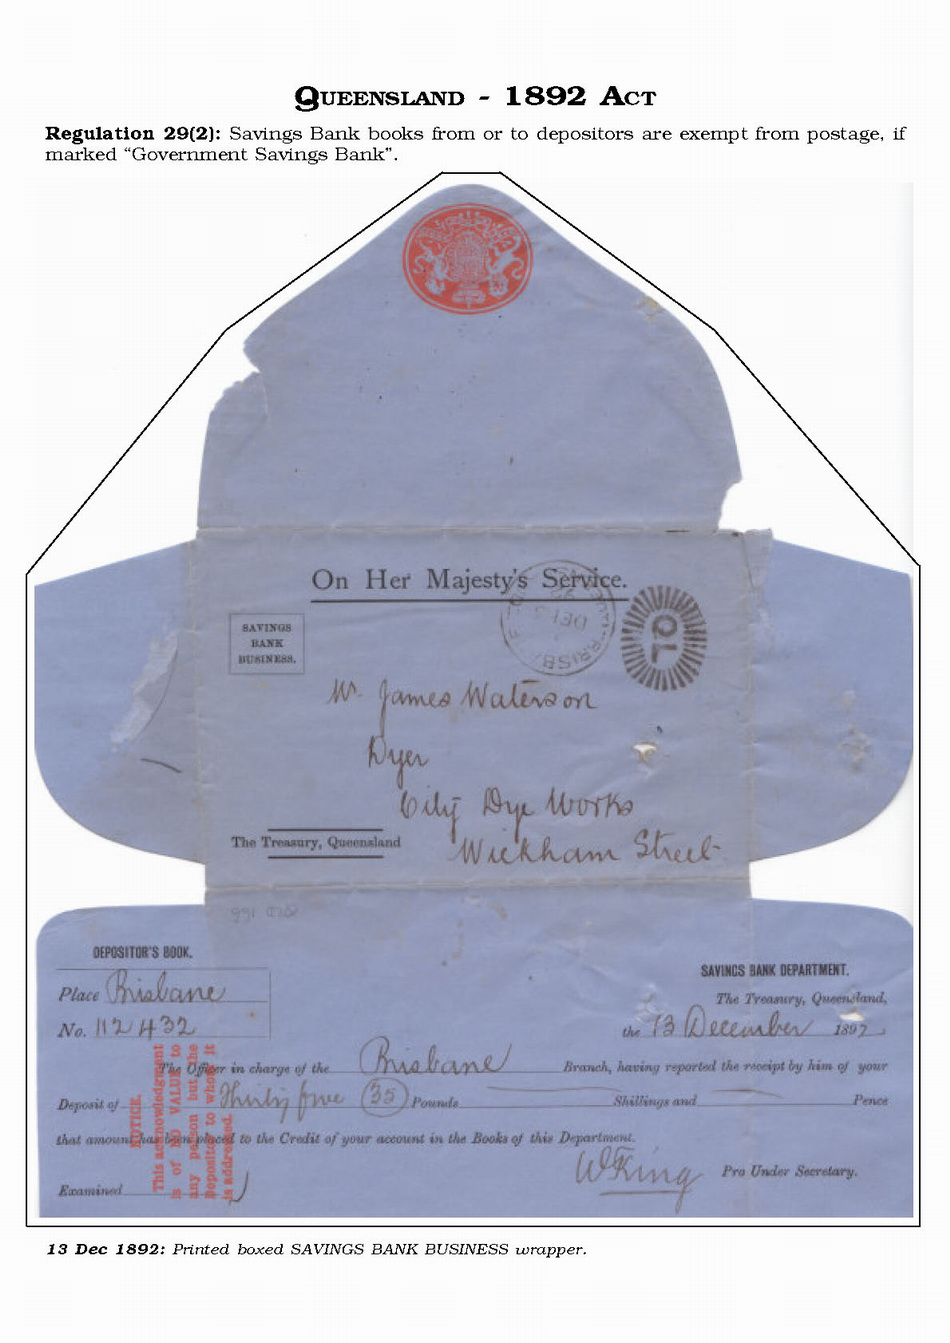 QUEENSLAND - 1892 ACT
Regulation 29(2): Savings Bank books from or to depositors are exempt from postage, if
marked “Government Savings Bank”.
On Her Majesty's Service.
SAVINGS
BANK
BUSINESS.
BRISBANE
DE 13
QL
Mr. James Waterson
Dyer
City Dye Works
The Treasury, Queensland
Wickham Street
DEPOSITOR'S BOOK.
SAVINGS BANK DEPARTMENT.
Place Brisbane
The Treasury, Queensland,
No. 112432
the 13 December 1892
The Officer in charge of the Brisbane Branch, having reported the receipt by him of your
Deposit of Thirty five (35) Pounds Shillings and Pence
that amount has been placed to the Credit of your account in the Books of this Department.
W King Pro Under Secretary.
Examined
NOTICE.
This acknowledgment
is of NO VALUE to
any person but the
Depositor to whom it
is addressed.
13 Dec 1892: Printed boxed SAVINGS BANK BUSINESS wrapper.